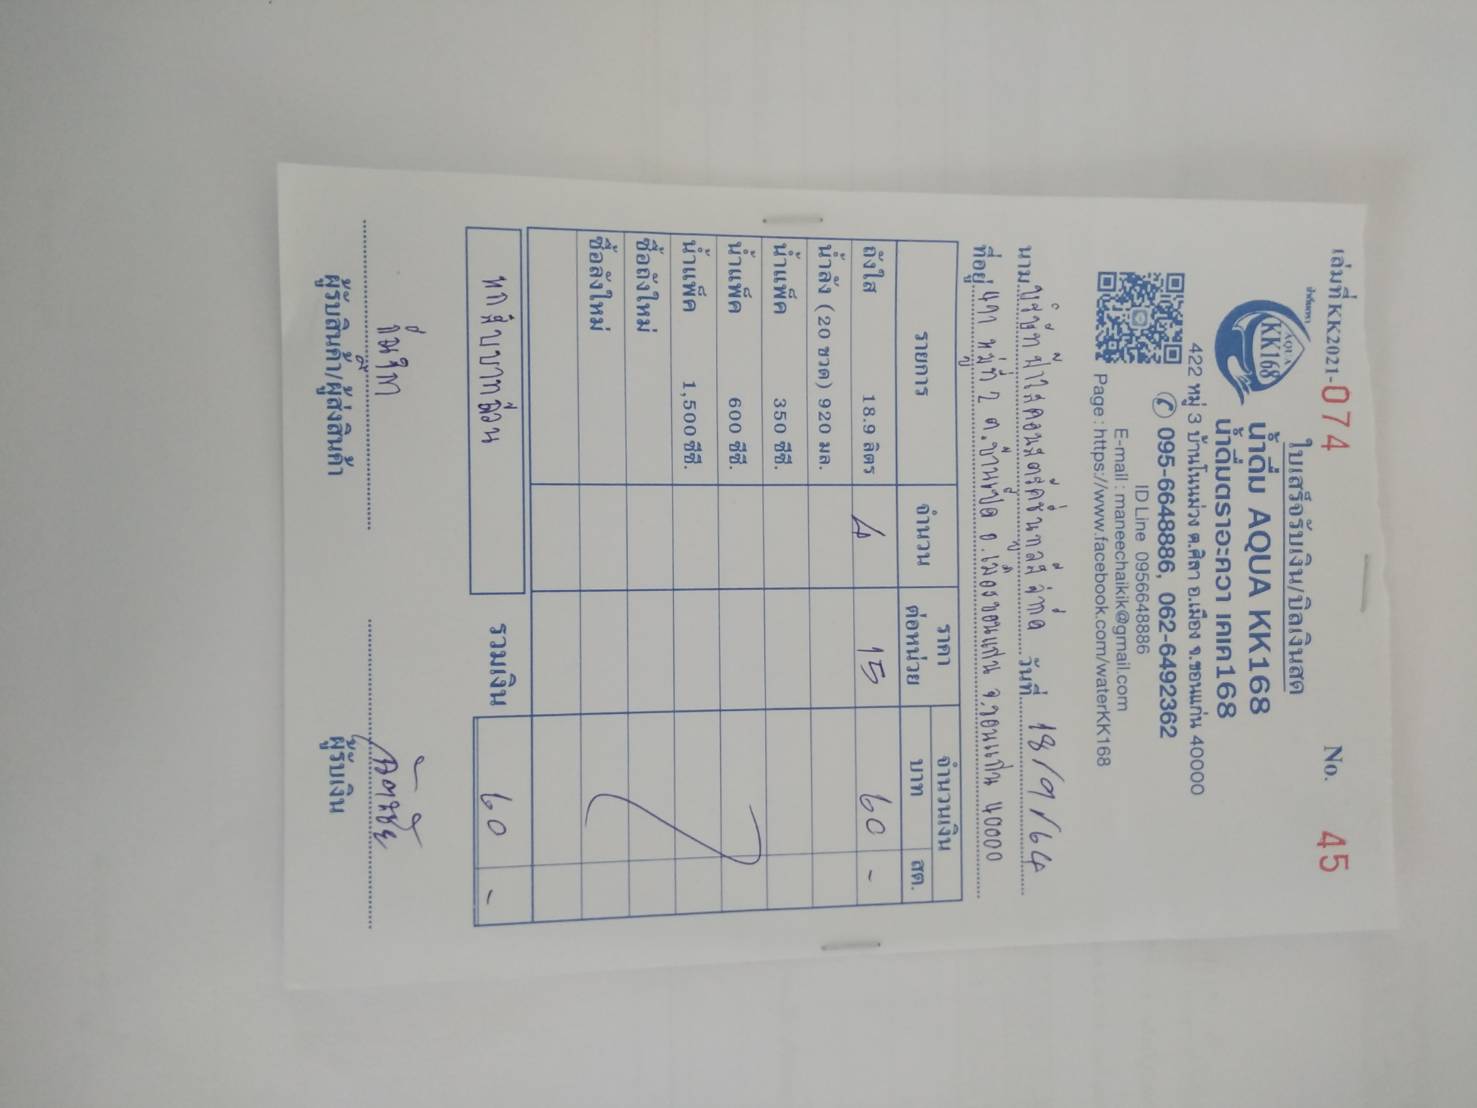 เล่มที่ KK2021-074 No. 45
ใบเสร็จรับเงิน/บิลเงินสด
AQUA
KK168
น้ำดื่ม AQUA KK168
น้ำดื่มตราอะควา เคเค168
422 หมู่ 3 บ้านโนนม่วง ต.ศิลา อ.เมือง จ.ขอนแก่น 40000
095-6648886, 062-6492362
ID Line 0956648886
E-mail : maneechaikik@gmail.com
Page : https://www.facebook.com/waterKK168
นาม บริษัท คอนสตรัคชั่น จำกัด วันที่ 18/9/64
ที่อยู่ หมู่ที่ ต.บ้านเป็ด อ.เมืองขอนแก่น จ.ขอนแก่น 40000
รายการ จำนวน ราคาต่อหน่วย จำนวนเงิน บาท สต.
ถังใส 18.9 ลิตร 4 15 60 -
น้ำลัง (20 ขวด) 920 มล.
น้ำแพ็ค 350 ซีซี.
น้ำแพ็ค 600 ซีซี.
น้ำแพ็ค 1,500 ซีซี.
ซื้อถังใหม่
ซื้อลังใหม่
หกสิบบาทถ้วน รวมเงิน 60 -
ผู้รับสินค้า/ผู้ส่งสินค้า ผู้รับเงิน